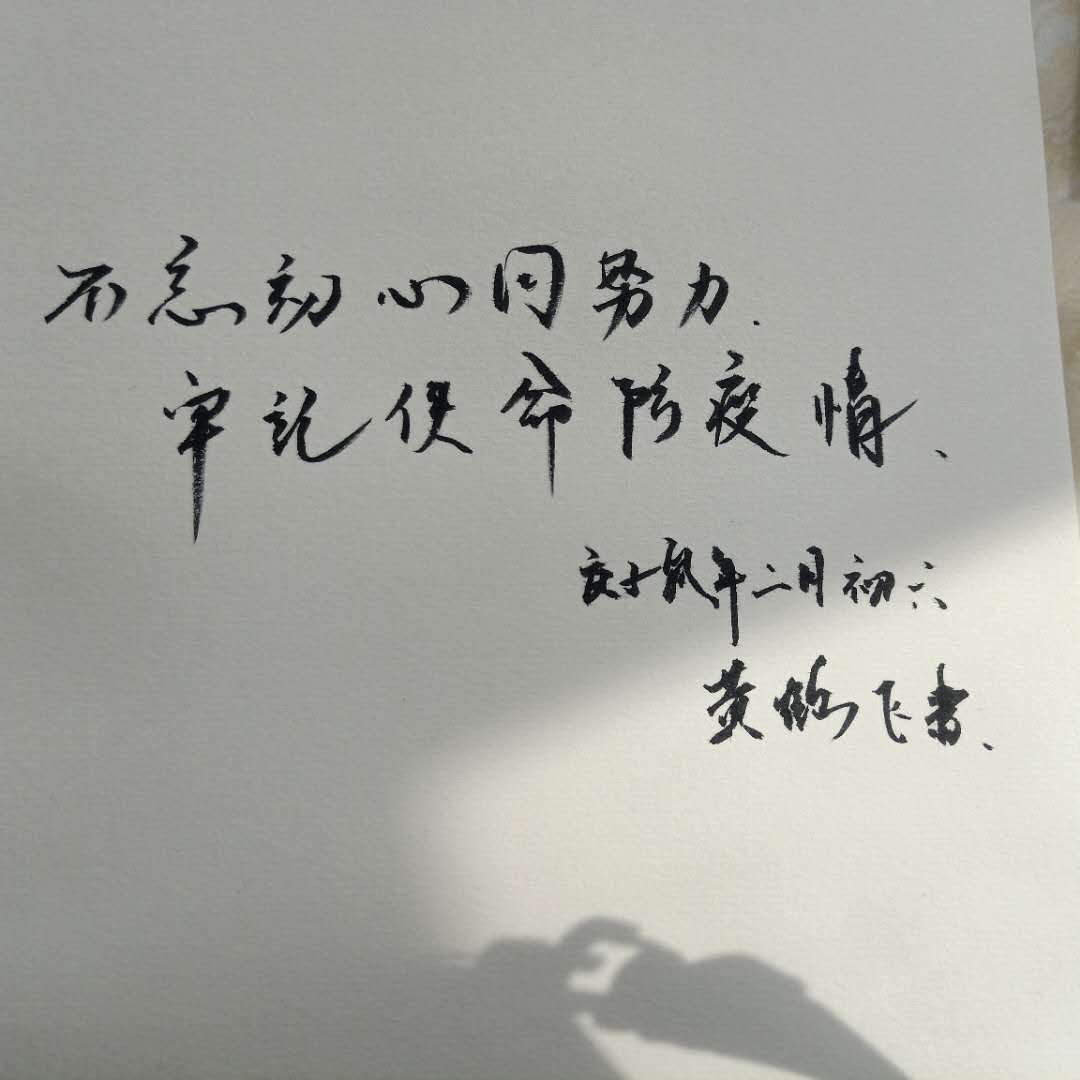 不忘初心同努力.
牢记使命防疫情、
庚子鼠年二月初六
黄鹤飞书、